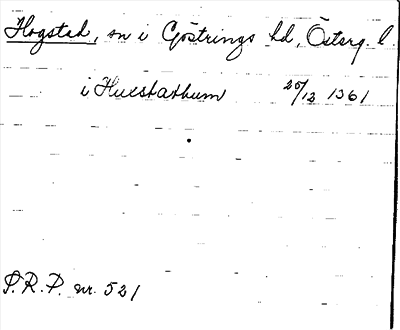 Hogstad, sn i Göstrings hd, Österg. l.
i Huestathum 25/12 1361
S.R.P. nr. 521